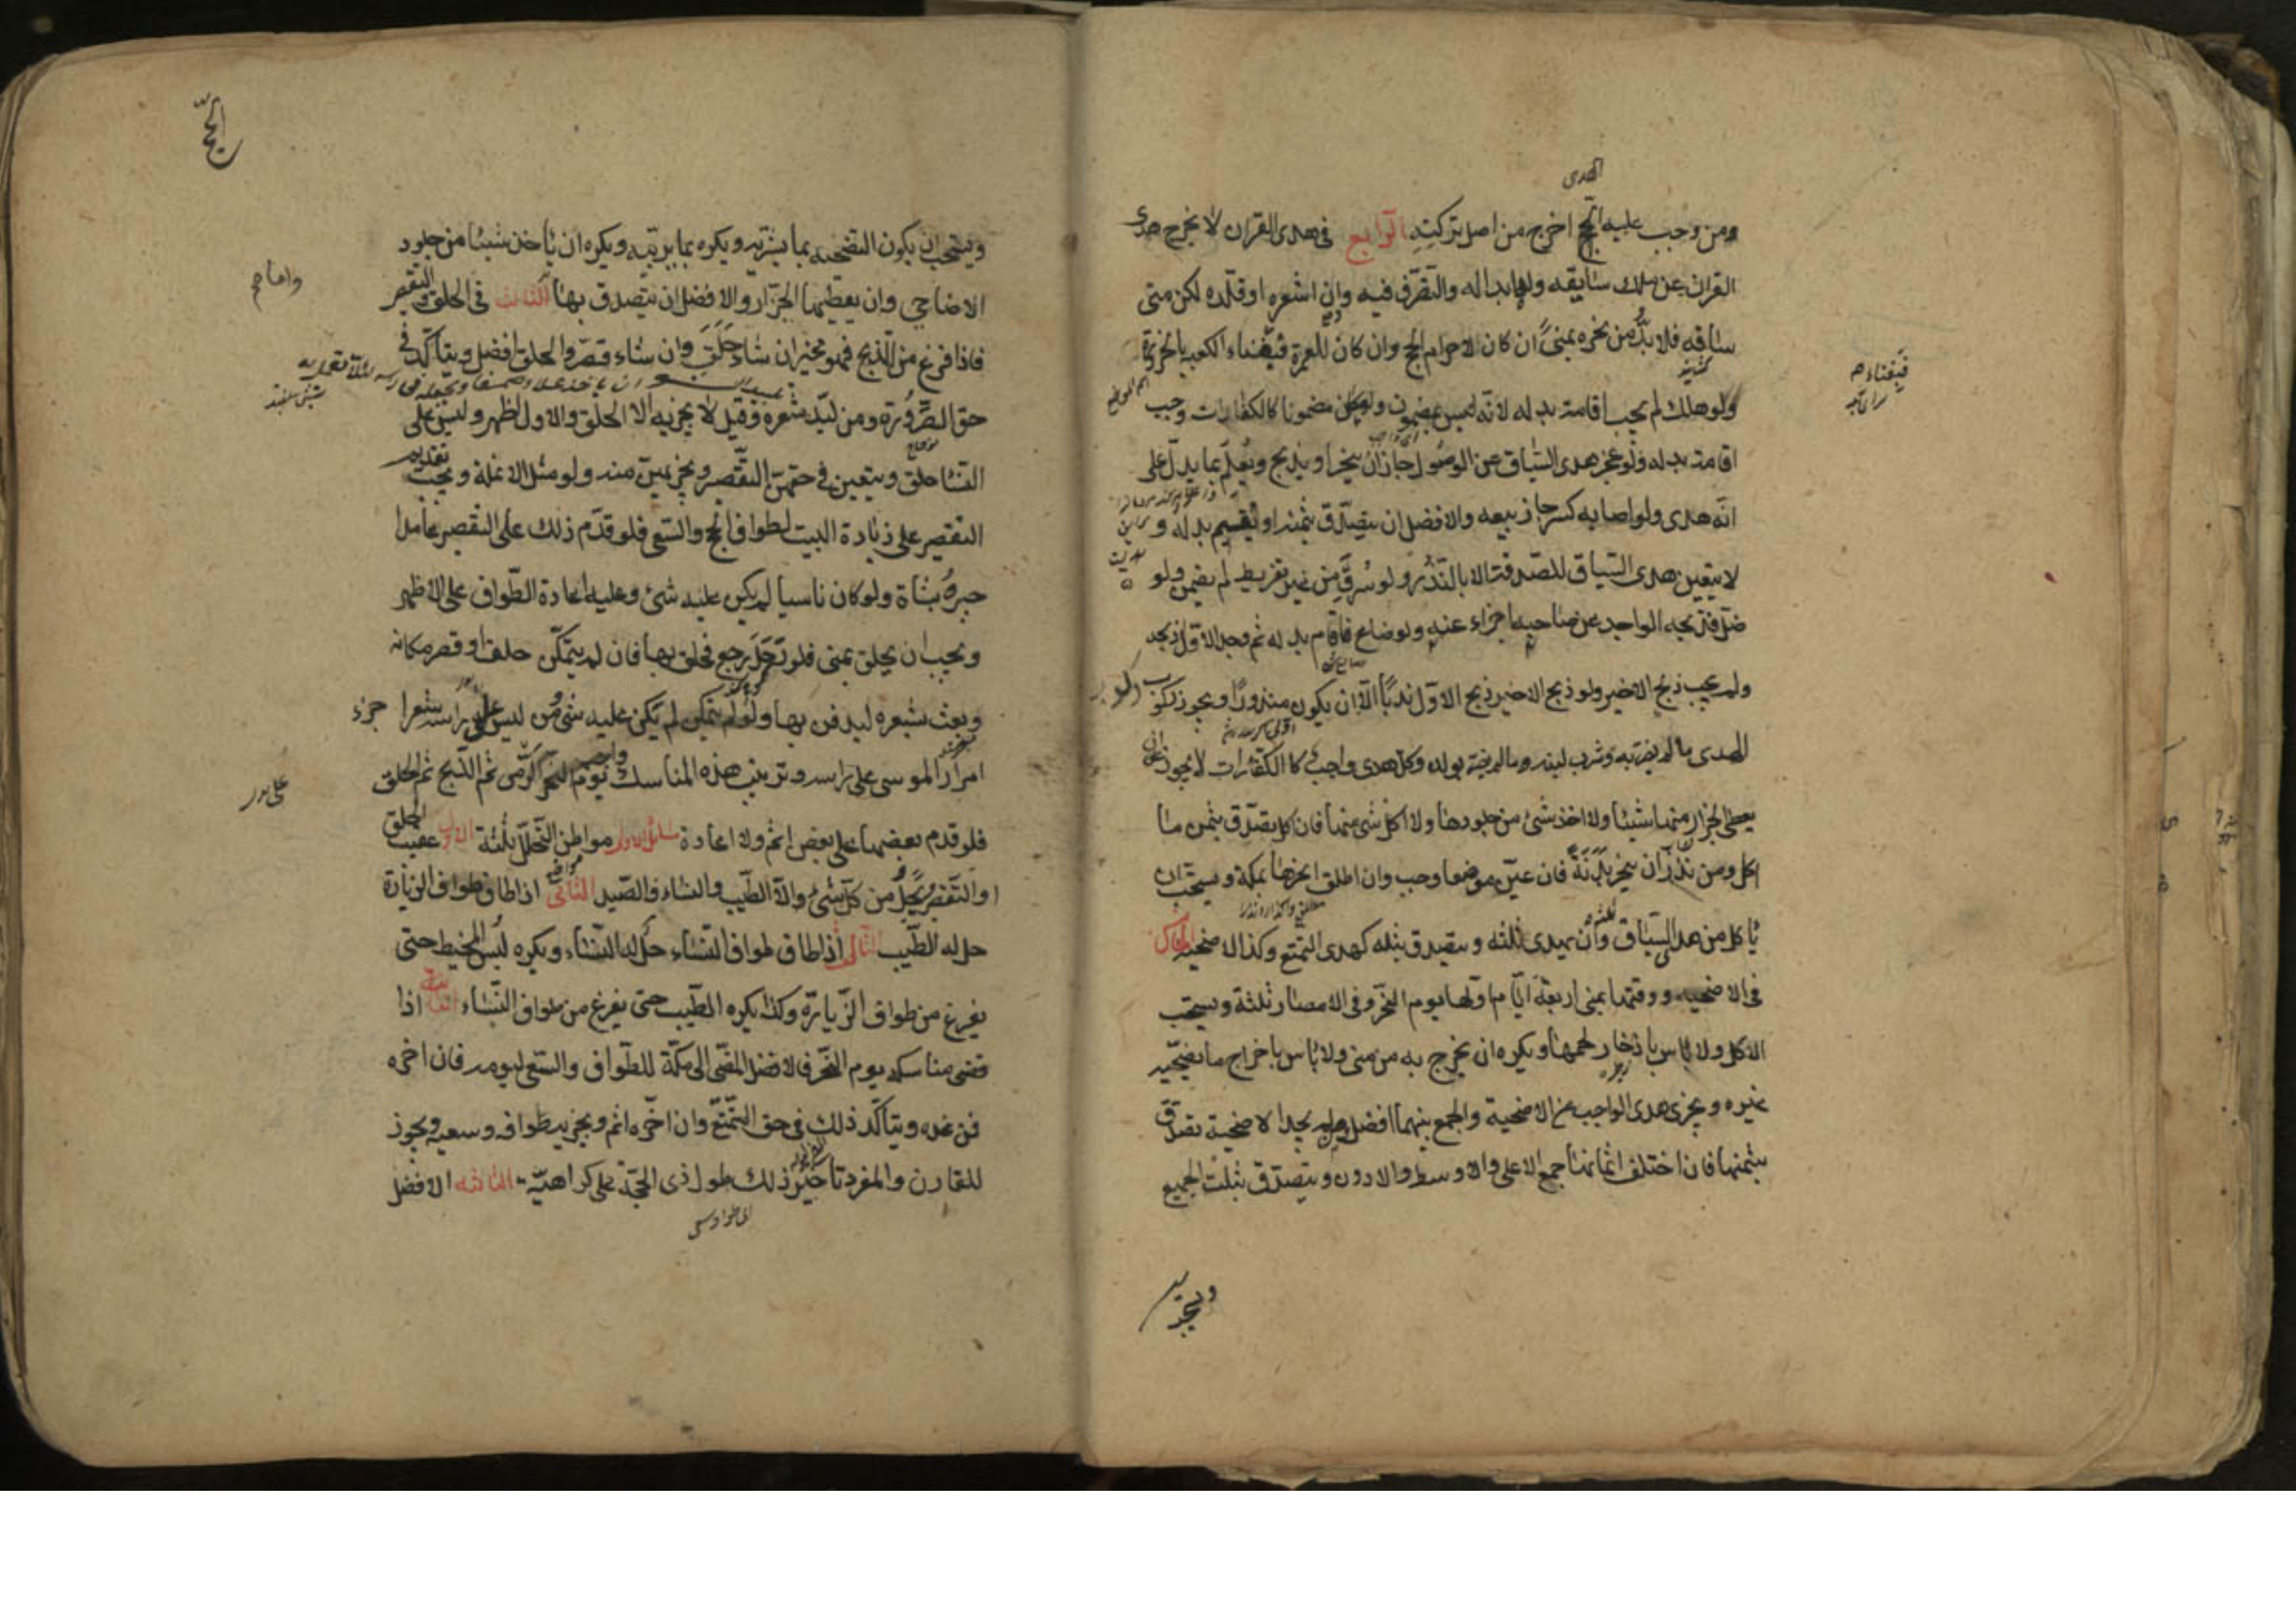 الهدى
ومن وجب عليه الحج اخرج من اصل تركته الرابع فى هدى القران لا يخرج هدى
القران عن ملك سايقه وله ابداله والتصرف فيه وان اشعره او قلده لكن متى
ساقه فلا بد من نحره بمنى ان كان لاحرام الحج وان كان للعمرة فبفناء الكعبة بالحزورة
ولو هلك لم يجب اقامة بدله لانه ليس بمضمون ولو كان مضمونا كالكفارات وجب
اقامة بدله ولو عجز هدى السياق عن الوصول جاز ان ينحر او يذبح ويعلم بما يدل على
انه هدى ولو اصابه كسر جاز بيعه والافضل ان يتصدق بثمنه او يقيم بدله و
لا يتعين هدى السياق للصدقة الا بالنذر ولو سرق من غير تفريط لم يضمن ولو
ضل فذبحه الواجد عن صاحبه اجزاء عنه ولو ضاع فاقام بدله ثم وجد الاول ذبحه
ولم يجب ذبح الاخير ولو ذبح الاخير ذبح الاول ندبا الا ان يكون منذورا ويجوز ركوب
الهدى ما لم يضر به وشرب لبنه وما لم يضر بولده وكل هدى واجب كا الكفارات لا يجوز ان
يعطى الجزار منها شيئا ولا اخذ شئ من جلودها ولا اكل شئ منها فان اكل تصدق بثمن ما
اكل ومن نذر ان ينحر بدنة فان عين موضعا وجب وان اطلق نحرها بمكة ويستحب ان
ياكل من هدى السياق وان يهدى ثلثه ويتصدق بثلثه كهدى التمتع وكذا الاضحية الخامس
فى الاضحيه ووقتها بمنى اربعة ايام اولها يوم النحر وفى الامصار ثلثة ويستحب
الاكل ولا باس بادخار لحمها ويكره ان يخرج به من منى ولا باس باخراج ما يضحيه
غيره ويجزى هدى الواجب عن الاضحية والجمع بينهما افضل ومن لم يجد الاضحية تصدق
بثمنها فان اختلف اثمانها جمع الاعلى والاوسط والادون ويتصدق بثلث الجميع
الحج
ويستحب ان يكون التضحيه بما يشتريه ويكره بما يربيه ويكره ان ياخذ شيئا من جلود
الاضاحى وان يعطيها الجزار والافضل ان يتصدق بها الثالث فى الحلق والتقصير
فاذا فرغ من الذبح فهو مخير ان شاء حلق وان شاء قصر والحلق افضل ويتاكد فى
حق الصرورة ومن لبد شعره وقيل لا يجزيه الا الحلق والاول اظهر وليس على
النساء حلق ويتعين فى حقهن التقصير ويجزيهن منه ولو مثل الانملة ويجب تقديم
التقصير على زيارة البيت لطواف الحج والسعى فلو قدم ذلك على التقصير عامدا
جبره بشاة ولو كان ناسيا لم يكن عليه شئ وعليه اعادة الطواف على الاظهر
ويجب ان يحلق بمنى فلو رحل رجع فحلق بها فان لم يتمكن حلق او قصر مكانه
وبعث بشعره ليدفن بها ولو لم يتمكن لم يكن عليه شئ ومن ليس على راسه شعر اجزء
امرار الموسى على راسه وترتيب هذه المناسك واجب يوم النحر الرمى ثم الذبح ثم الحلق
فلو قدم بعضها على بعض اثم ولا اعادة مسائل الاولى مواطن التحلل ثلثة الاول عقيب الحلق
او التقصير يحل من كل شئ الا الطيب والنساء والصيد الثانى اذا طاف طواف الزيارة
حل له الطيب الثالث اذا طاف طواف النساء حل له النساء ويكره لبس المخيط حتى
يفرغ من طواف الزيارة وكذا يكره الطيب حتى يفرغ من طواف النساء الثانية اذا
قضى مناسكه يوم النحر فالافضل المضى الى مكة للطواف والسعى ليومه فان اخره
فمن غده ويتاكد ذلك فى حق المتمتع وان اخره اثم ويجزيه طوافه وسعيه ويجوز
للقارن والمفرد تاخير ذلك طول ذى الحجة على كراهية الثالثه الافضل